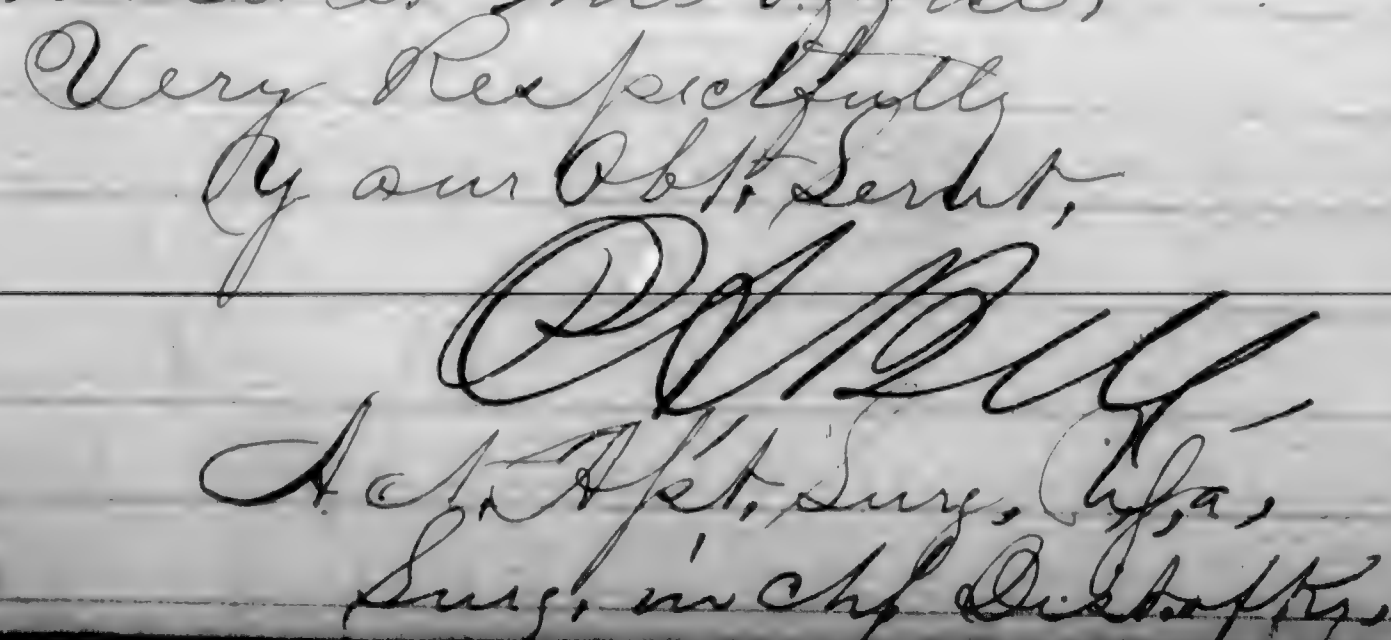 Very Respectfully
Your Obt. Servt,
R A Bell
Act. Asst. Surg. U.S.a,
Surg. in Chf Dist. of Ky.